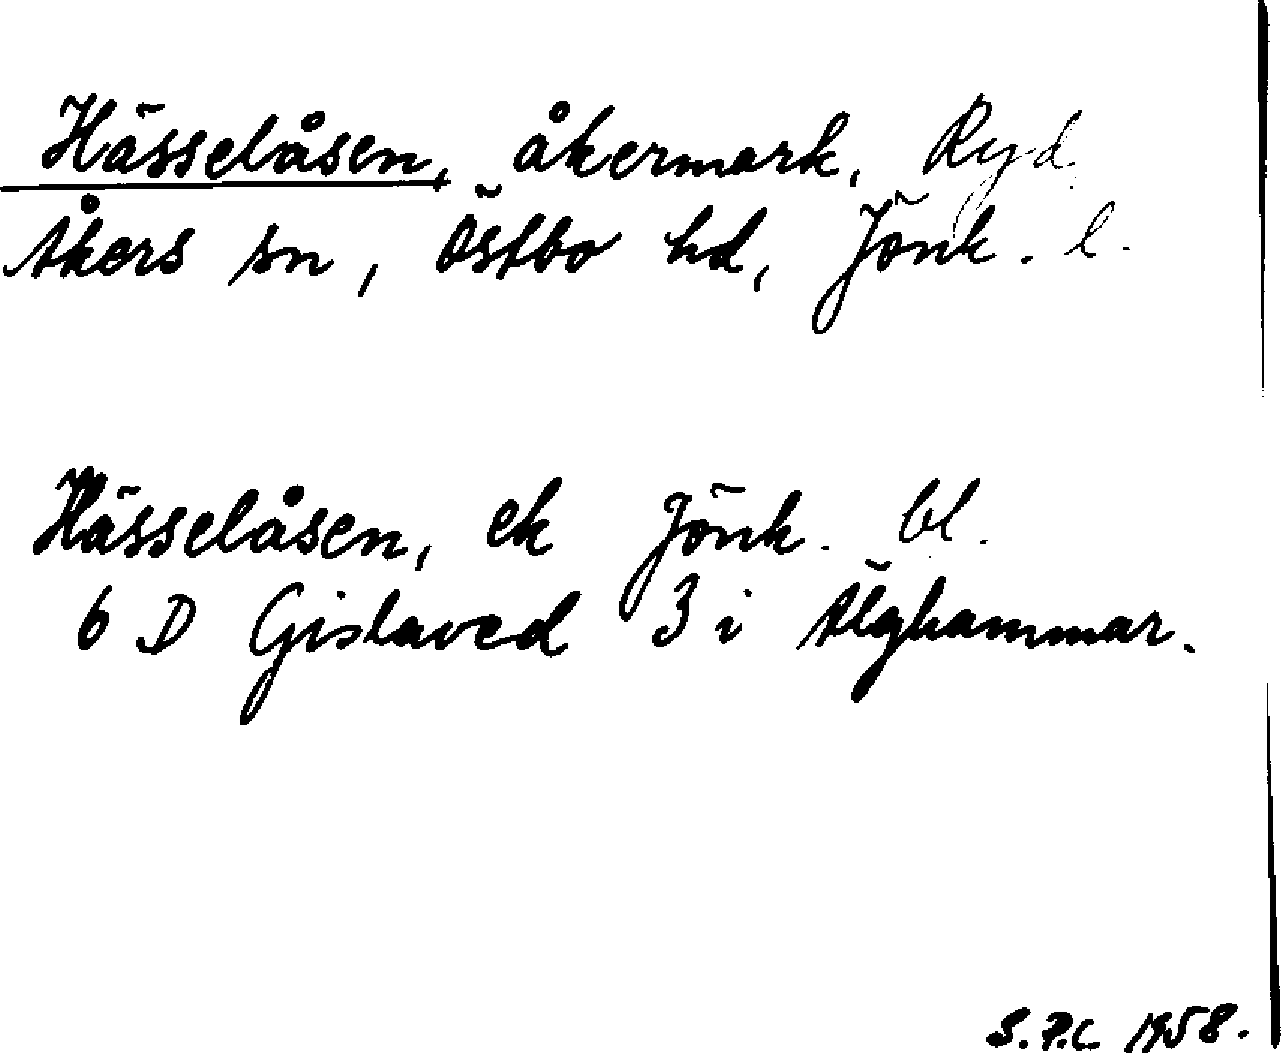 Hässelåsen, åkermark, Ryd
Åkers sn, Östbo hd, Jönk. l.
Hässelåsen, ek Jönk. bl.
6 D Gislaved 3 i Älghammar.
S.P.C 1958.